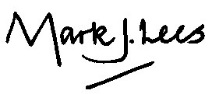 Mark J. Lees